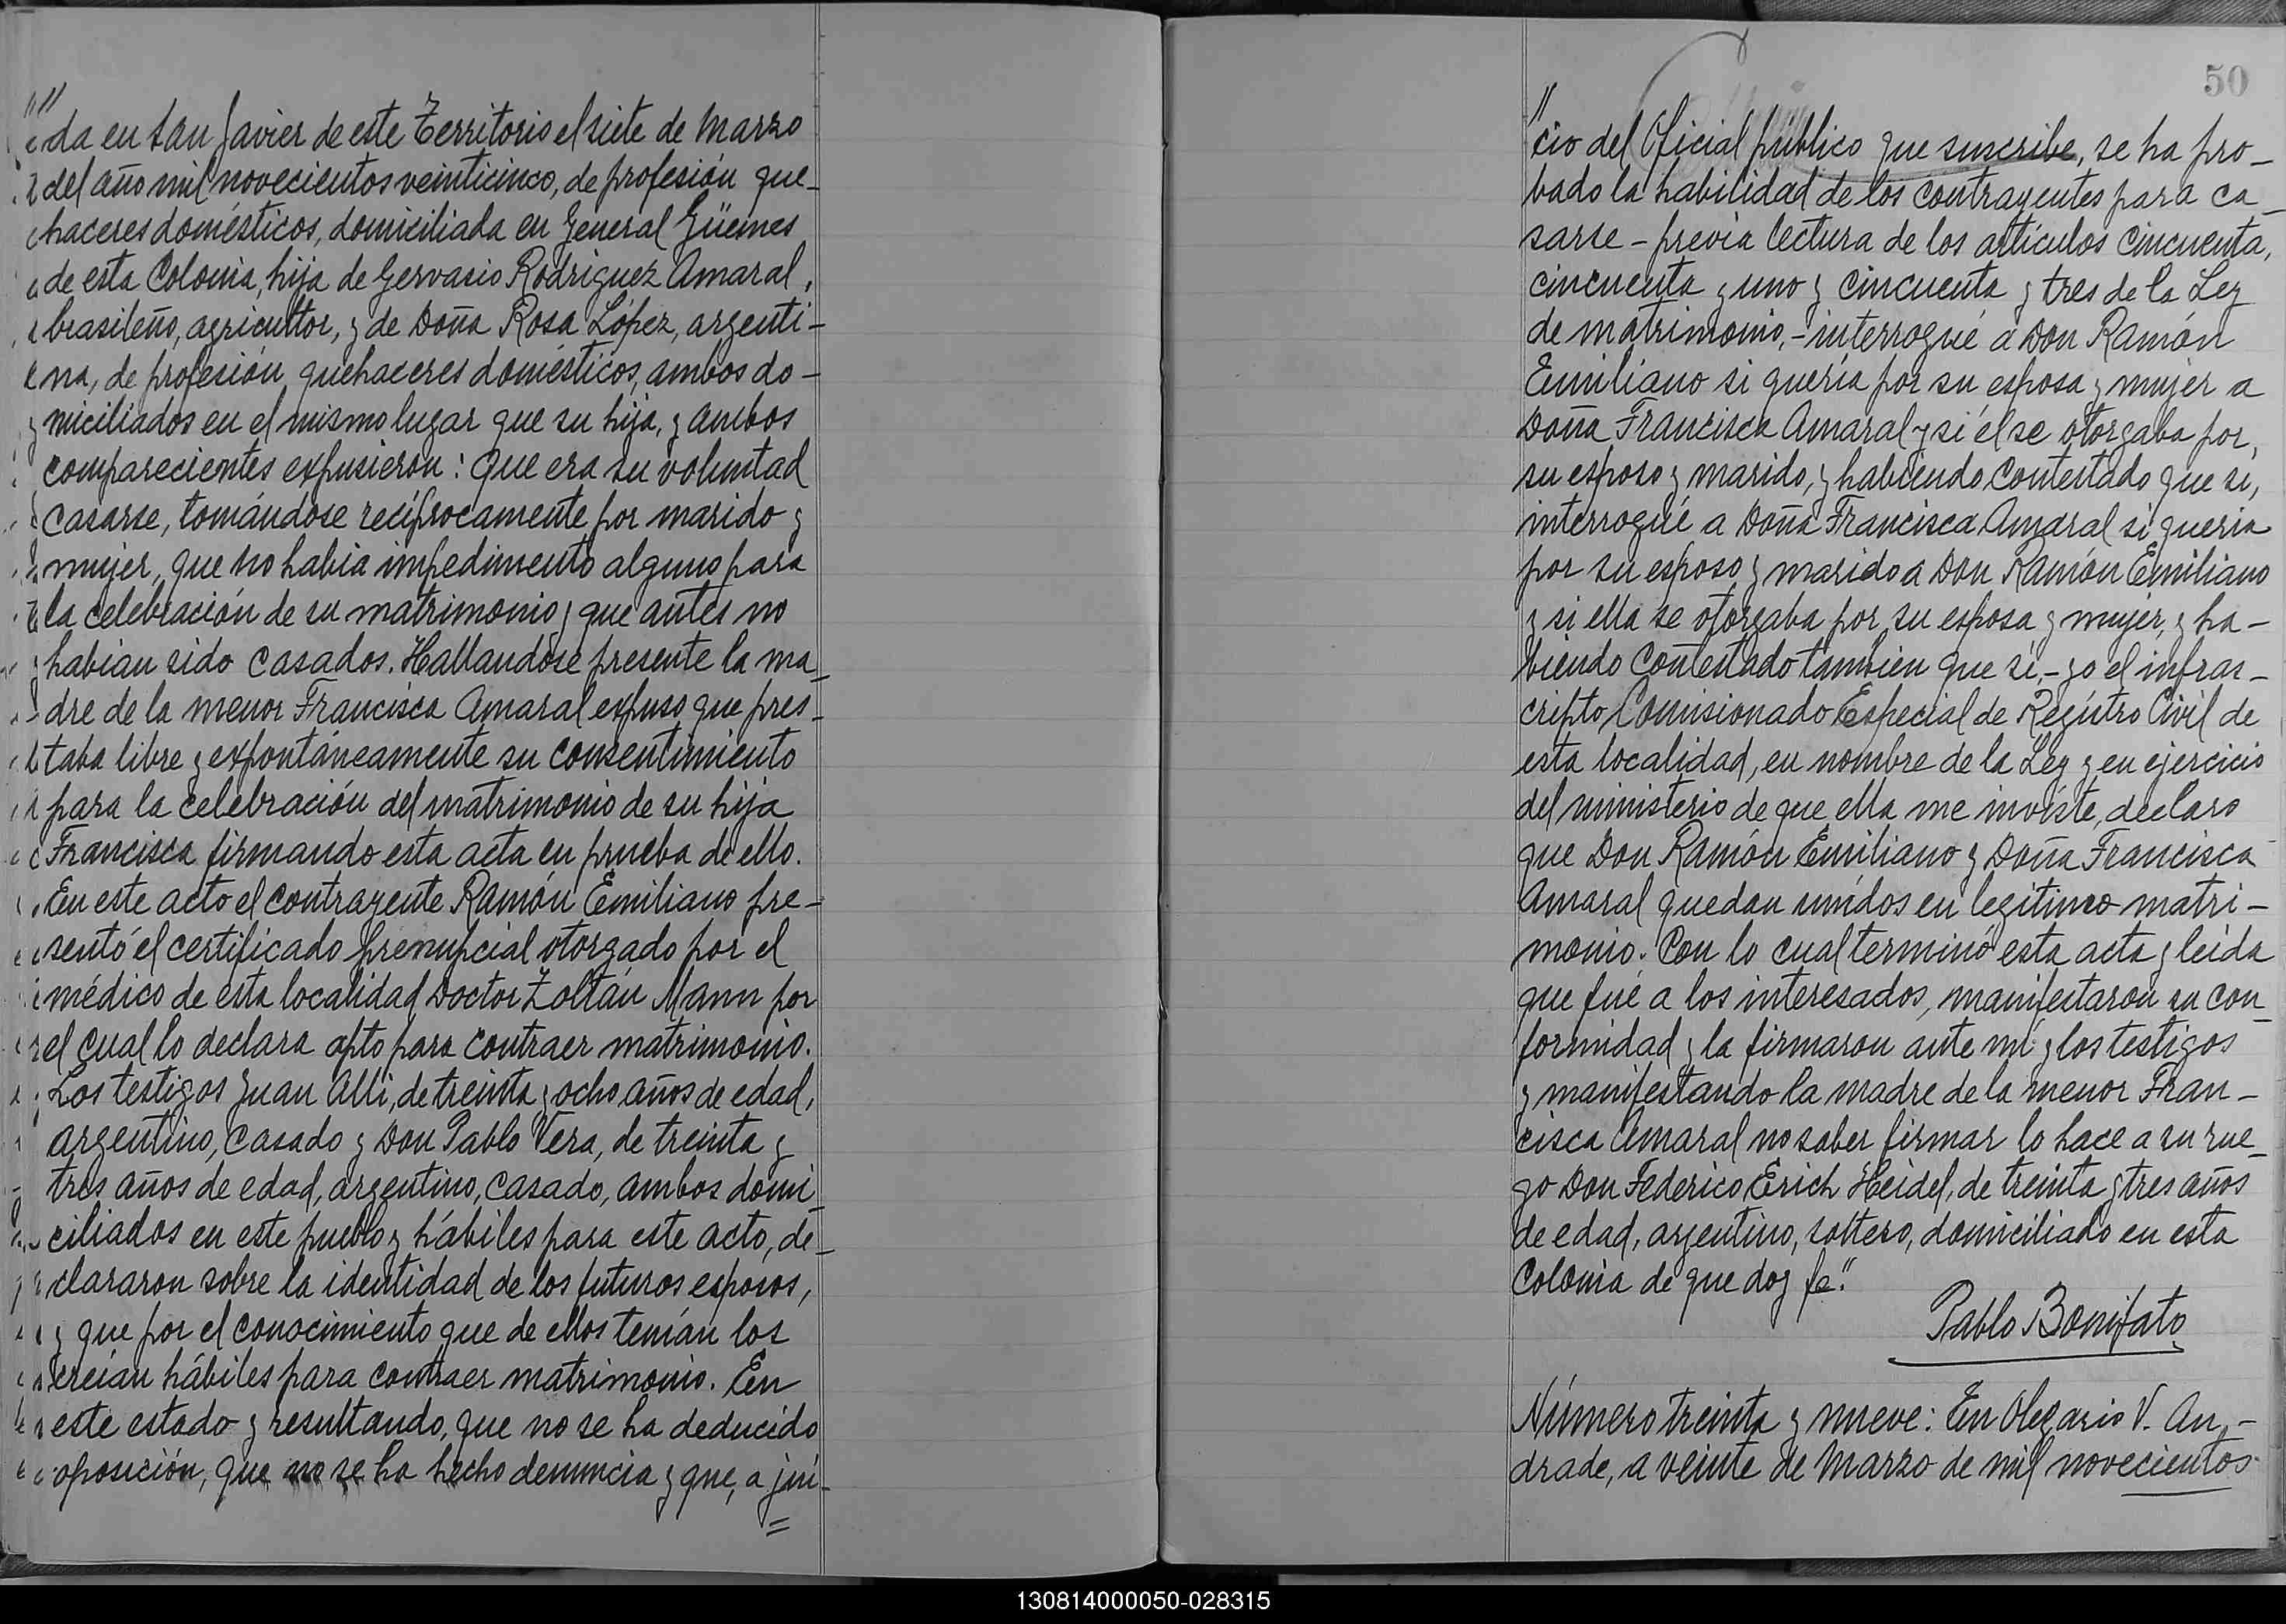 da en San Javier de este Territorio el siete de Marzo
del año mil novecientos veinticinco, de profesión que-
haceres domésticos, domiciliada en General Güemes
de esta Colonia, hija de Gervasio Rodriguez Amaral,
brasileño, agricultor, y de Doña Rosa López, argenti-
na, de profesión quehaceres domésticos, ambos do-
miciliados en el mismo lugar que su hija, y ambos
comparecientes expusieron: Que era su voluntad
casarse, tomándose recíprocamente por marido y
mujer, que no habia impedimento alguno para
la celebración de su matrimonio y que antes no
habian sido casados. Hallandose presente la ma-
dre de la menor Francisca Amaral expuso que pres-
taba libre y expontáneamente su consentimiento
para la celebración del matrimonio de su hija
Francisca firmando esta acta en prueba de ello.
En este acto el contrayente Ramón Emiliano pre-
sentó el certificado prenupcial otorgado por el
médico de esta localidad Doctor Zoltán Mann por
el cual lo declara apto para contraer matrimonio.
Los testigos Juan Alli, de treinta y ocho años de edad,
argentino, casado y Don Pablo Vera, de treinta y
tres años de edad, argentino, casado, ambos domi-
ciliados en este pueblo y hábiles para este acto, de-
clararon sobre la identidad de los futuros esposos,
y que por el conocimiento que de ellos tenían los
creían hábiles para contraer matrimonio. En
este estado y resultando, que no se ha deducido
oposición, que no se ha hecho denuncia y que, a jui-
50
cio del Oficial público que suscribe, se ha pro-
bado la habilidad de los contrayentes para ca-
sarse - previa lectura de los artículos cincuenta,
cincuenta y uno y cincuenta y tres de la Ley
de matrimonio, - interrogué a Don Ramón
Emiliano si quería por su esposa y mujer a
Doña Francisca Amaral y si él se otorgaba por
su esposo y marido, y habiendo contestado que si,
interrogué a Doña Francisca Amaral si queria
por su esposo y marido a Don Ramón Emiliano
y si ella se otorgaba por su esposa y mujer, y ha-
biendo contestado tambien que si, - yo el infras-
cripto Comisionado Especial de Registro Civil de
esta localidad, en nombre de la Ley y en ejercicio
del ministerio de que ella me inviste, declaro
que Don Ramón Emiliano y Doña Francisca
Amaral quedan unidos en legítimo matri-
monio. Con lo cual terminó esta acta y leída
que fué a los interesados, manifestaron su con-
formidad y la firmaron ante mí y los testigos
y manifestando la madre de la menor Fran-
cisca Amaral no saber firmar lo hace a su rue-
go Don Federico Erich Heidel, de treinta y tres años
de edad, argentino, soltero, domiciliado en esta
Colonia de que doy fe."
Pablo Bonifato
Número treinta y nueve: En Olegario V. An-
drade, a veinte de Marzo de mil novecientos
130814000050-028315